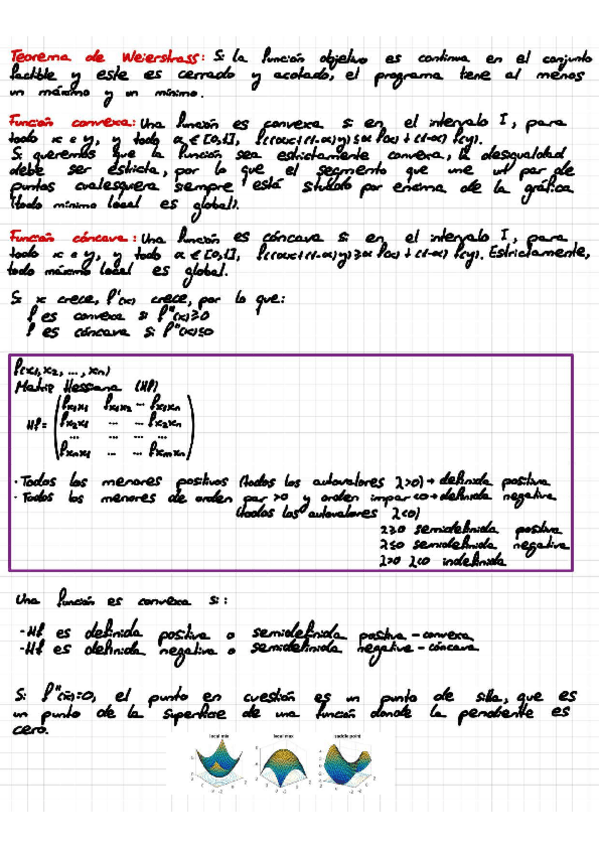 Teorema de Weierstrass: Si la función objetivo es continua en el conjunto
factible y este es cerrado y acotado, el programa tiene al menos
un máximo y un mínimo.
Función convexa: Una función es convexa si en el intervalo I, para
todo x e y, y todo α ∈ [0,1], f(αx+(1-α)y) ≤ α f(x) + (1-α) f(y).
Si queremos que la función sea estrictamente convexa, la desigualdad
debe ser estricta, por lo que el segmento que une un par de
puntos cualesquiera siempre está situado por encima de la gráfica
(todo mínimo local es global).
Función cóncava: Una función es cóncava si en el intervalo I, para
todo x e y, y todo α ∈ [0,1], f(αx+(1-α)y) ≥ α f(x) + (1-α) f(y). Estrictamente,
todo máximo local es global.
Si x crece, f'(x) crece, por lo que:
f es convexa si f''(x) ≥ 0
f es cóncava si f''(x) ≤ 0
f(x1, x2, ..., xn)
Matriz Hessiana (Hf)
fx1x1 fx1x2 ... fx1xn
Hf = fx2x1 ... ... fx2xn
... ... ... ...
fxnx1 ... ... fxnxn
· Todos los menores positivos (todos los autovalores λ>0) → definida positiva
· Todos los menores de orden par >0 y orden impar <0 → definida negativa
(todos los autovalores λ<0)
λ≥0 semidefinida positiva
λ≤0 semidefinida negativa
λ>0 λ<0 indefinida
Una función es convexa si:
- Hf es definida positiva o semidefinida positiva - convexa
- Hf es definida negativa o semidefinida negativa - cóncava
Si f''(x)=0, el punto en cuestión es un punto de silla, que es
un punto de la superficie de una función donde la pendiente es
cero.
local min local max saddle point